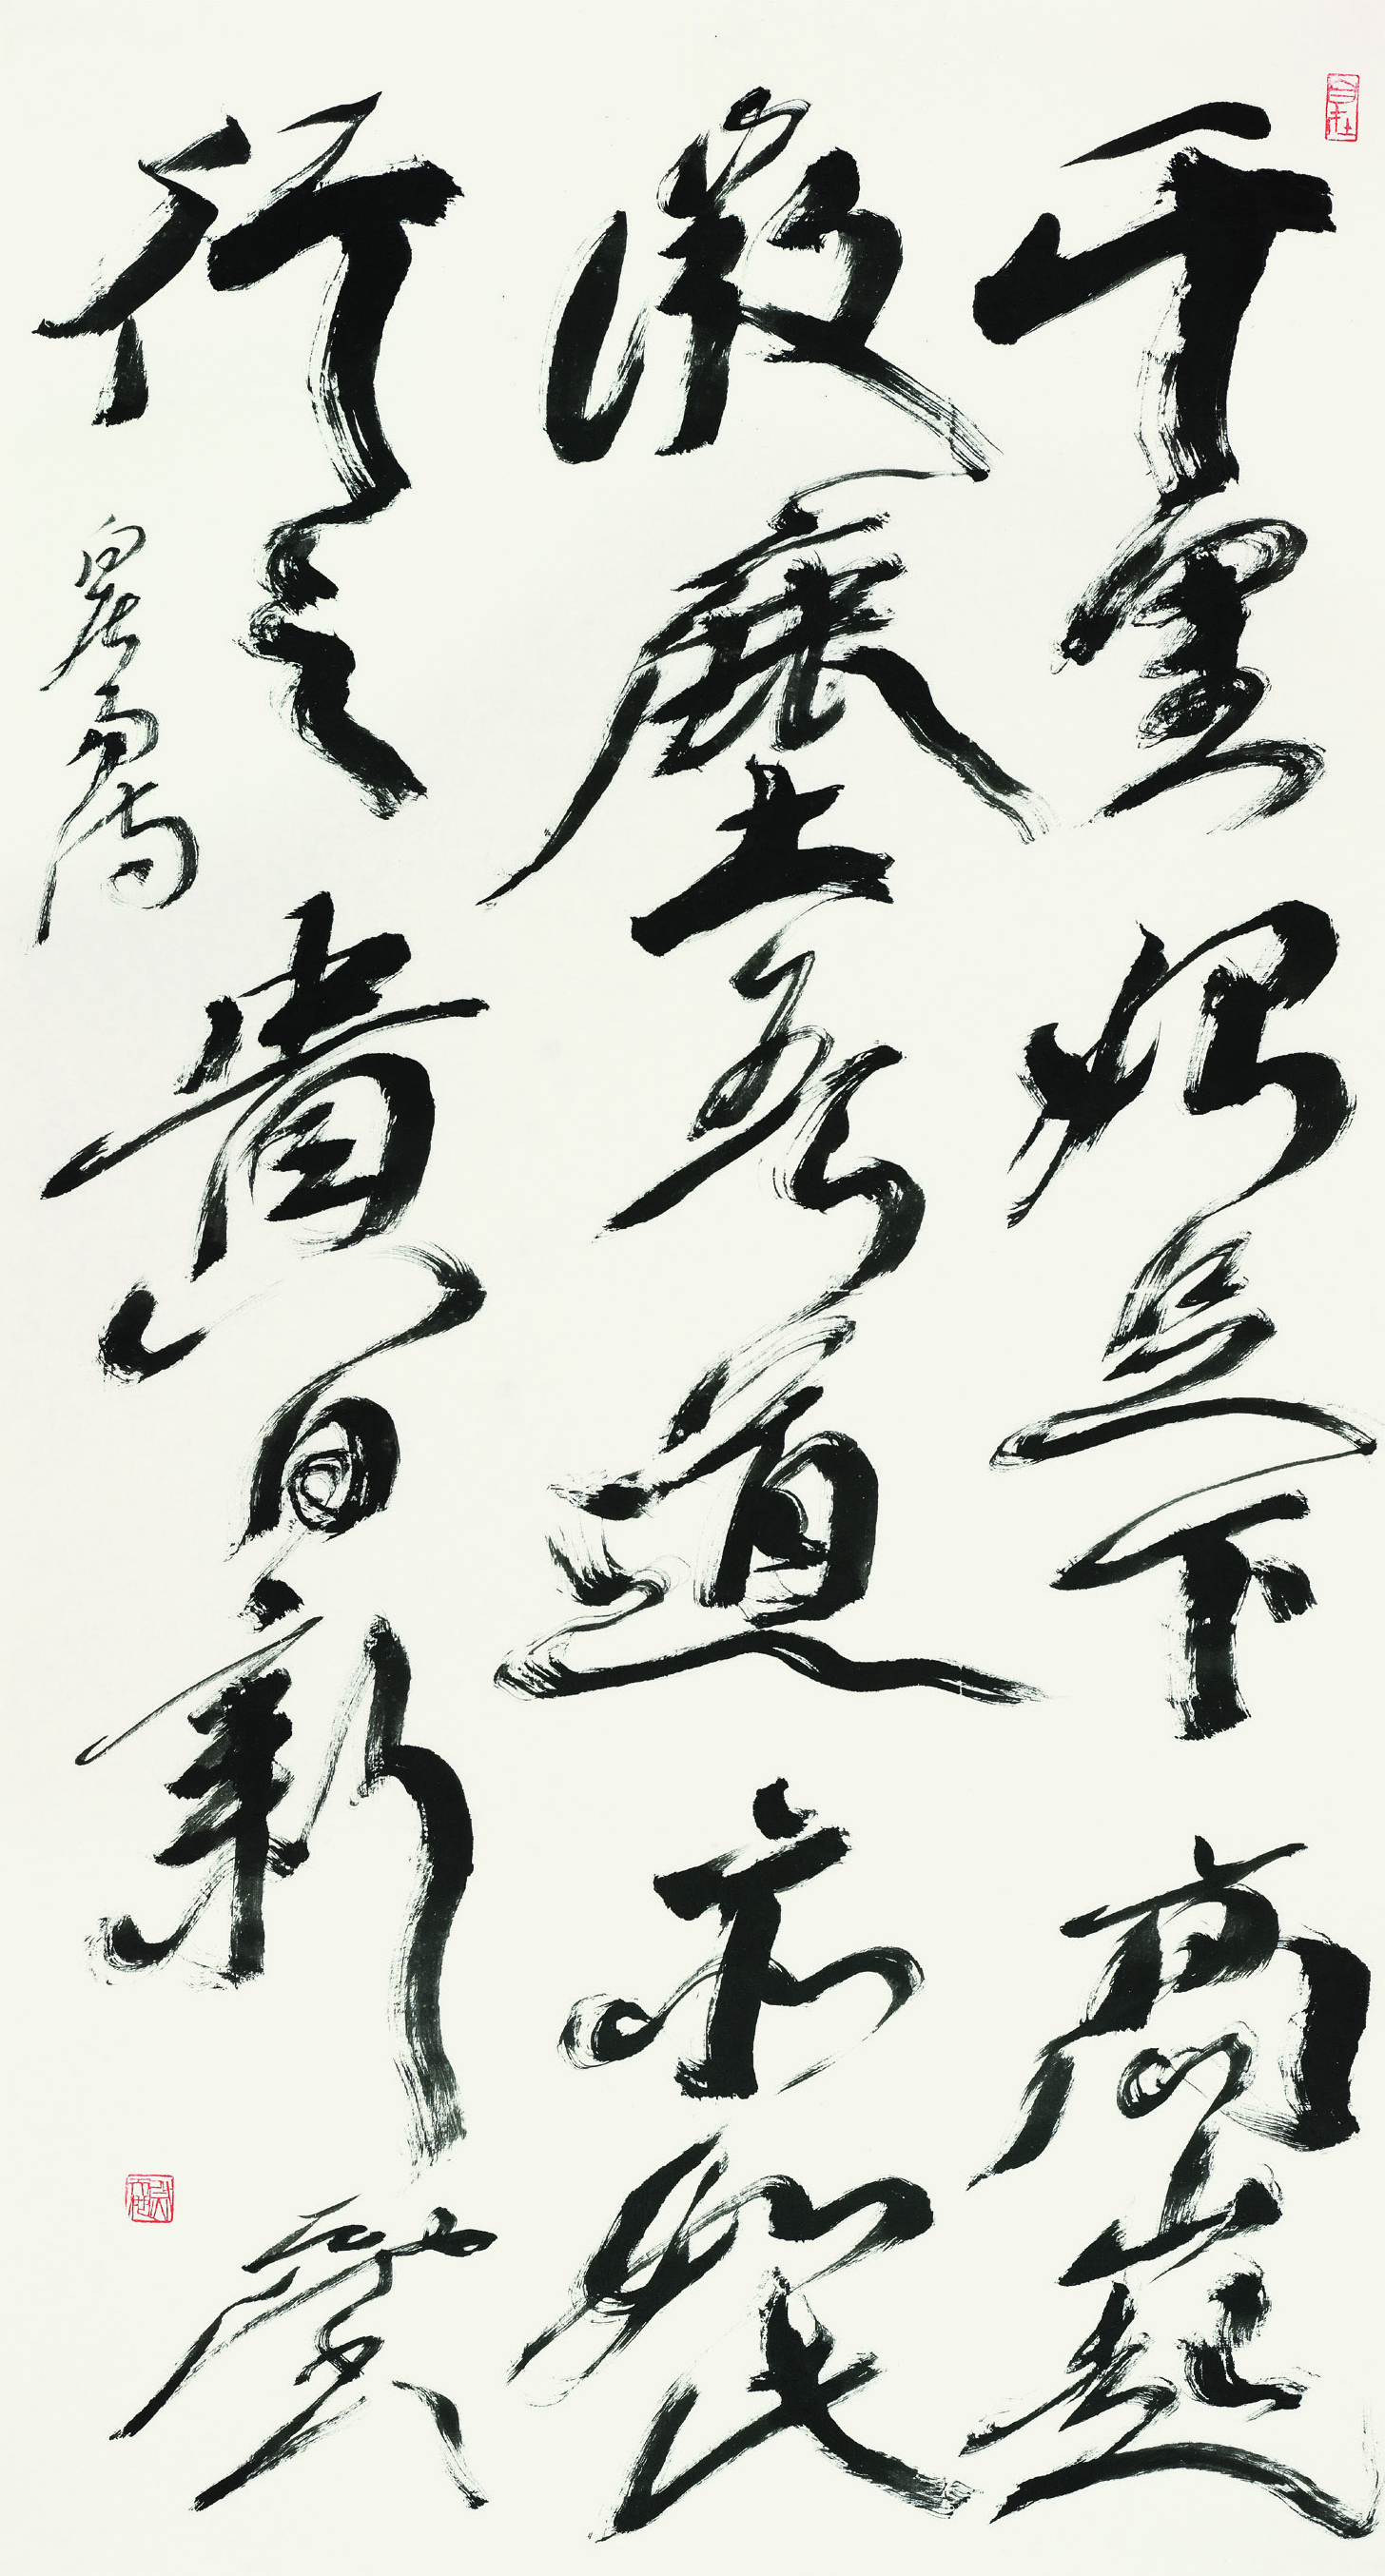 千里始足下高山起
微塵吾道亦如此
行之貴日新
白居易詩